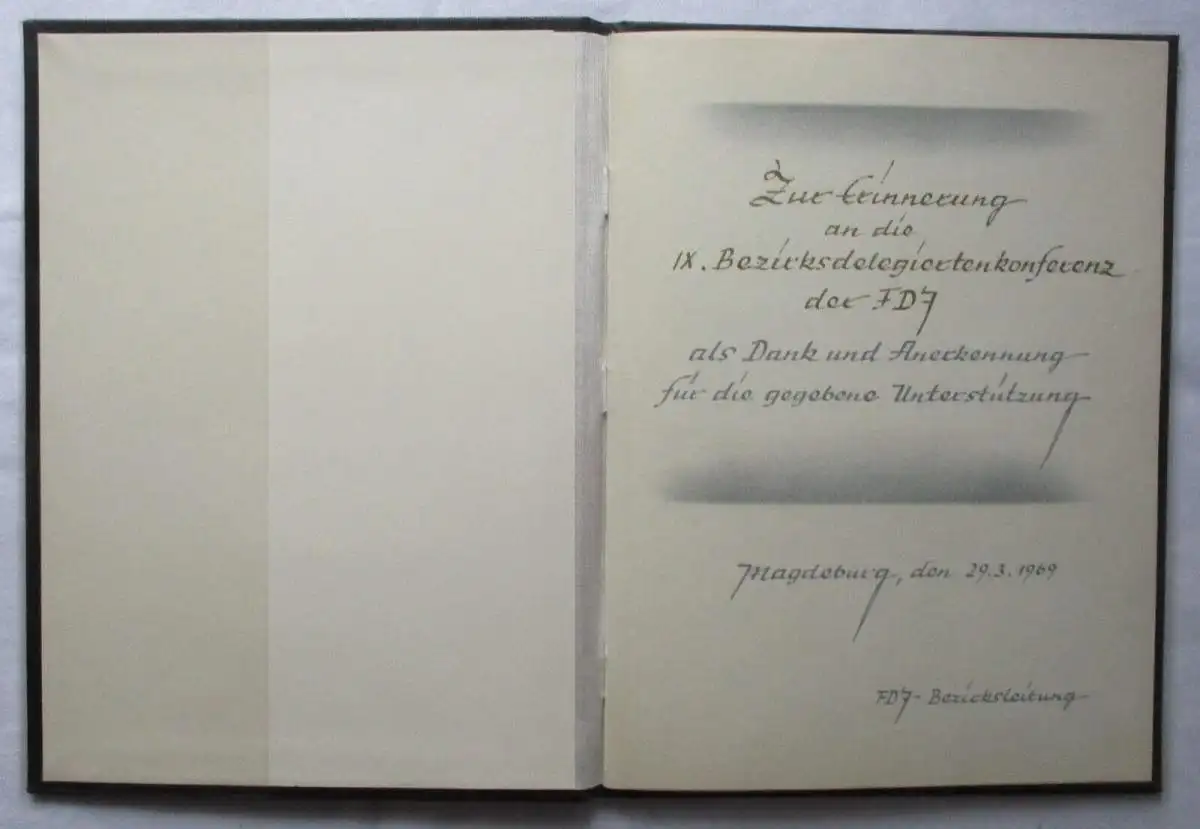 Zur Erinnerung
an die
IX. Bezirksdelegiertenkonferenz
der FDJ
als Dank und Anerkennung
für die gegebene Unterstützung
Magdeburg, den 29.3.1969
FDJ-Bezirksleitung